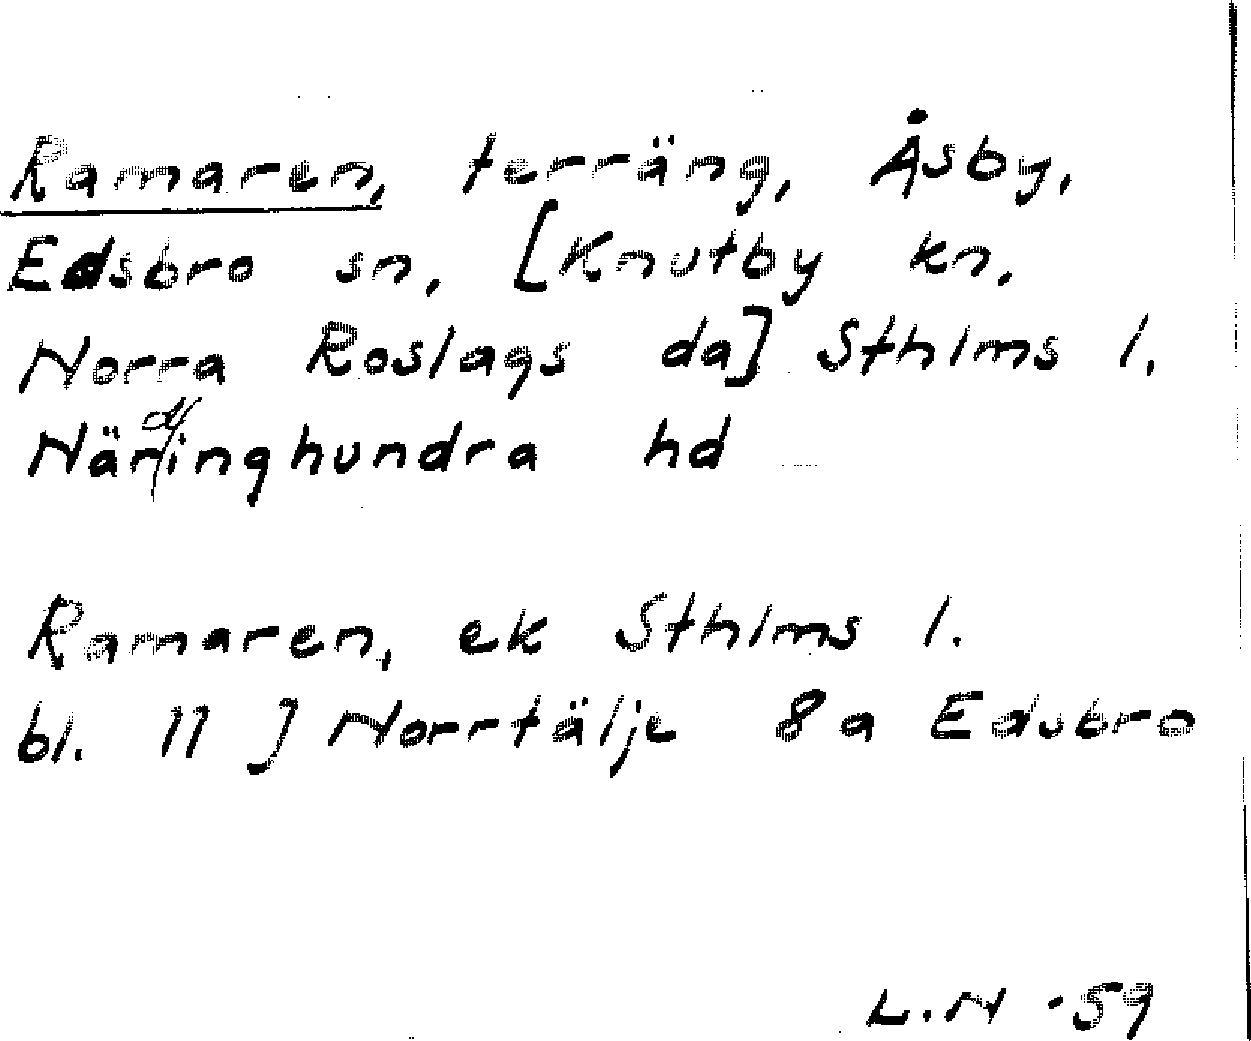 Ramaren, terräng, Åsby,
Edsbro sn, [Knutby kn.
Norra Roslags da] Sthlms l.
Närdinghundra hd
Ramaren, ek Sthlms l.
bl. 11 J Norrtälje 8a Edsbro
L.N -59